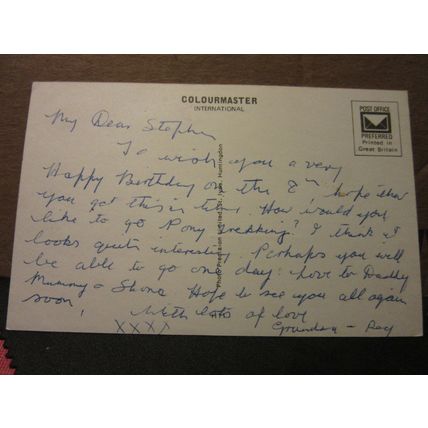 COLOURMASTER
INTERNATIONAL
POST OFFICE
PREFERRED
Printed in
Great Britain
My Dear Stephen
To wish you a very
Happy Birthday on the 8th hope that
you get this in time. How would you
like to go Pony trekking? I think it
looks quite interesting. Perhaps you will
be able to go one day. Love to Daddy
Mummy & Shona Hope to see you all again
soon,
With lots of love
XXXX
Photo Precision Limited, St. Ives, Huntingdon